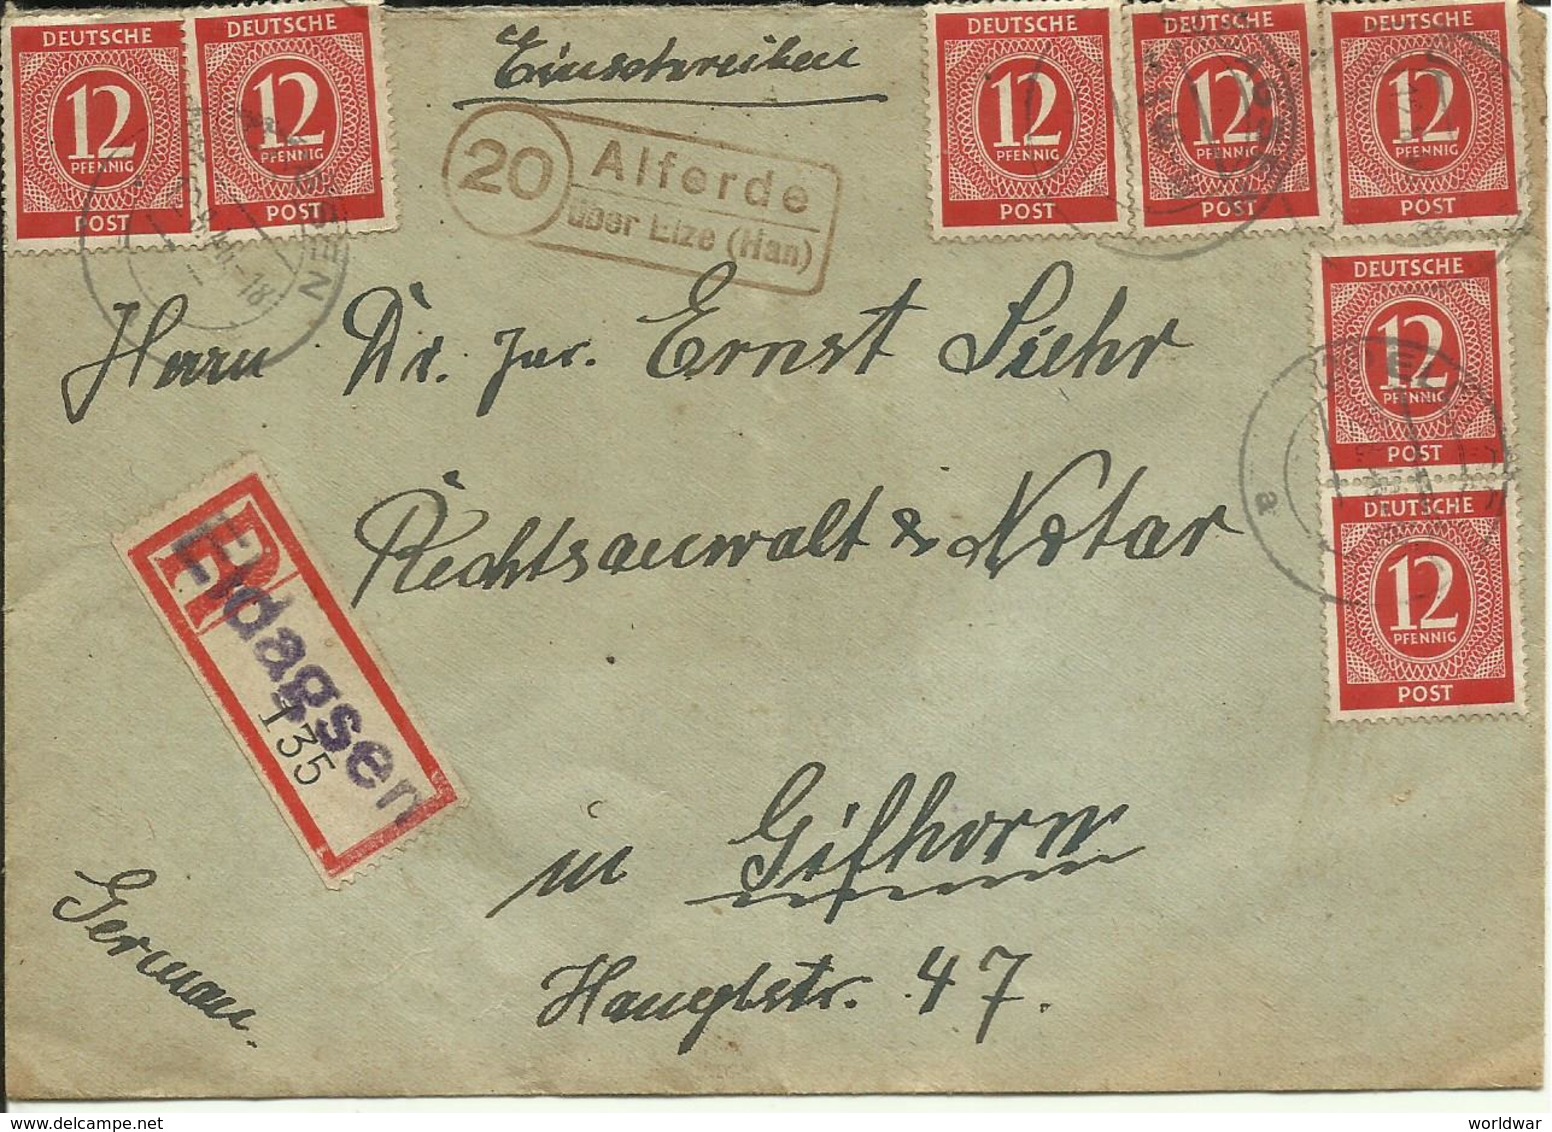 DEUTSCHE 12 PFENNIG POST
DEUTSCHE 12 PFENNIG POST
Einschreiben
DEUTSCHE 12 PFENNIG POST
DEUTSCHE 12 PFENNIG POST
DEUTSCHE 12 PFENNIG POST
20 Alferde
über Elze (Han)
DEUTSCHE 12 PFENNIG POST
DEUTSCHE 12 PFENNIG POST
Herrn Dr. jur. Ernst Siehr
Rechtsanwalt & Notar
R Eldagsen
135
in Gifhorn
Hauptstr. 47.
German
worldwar